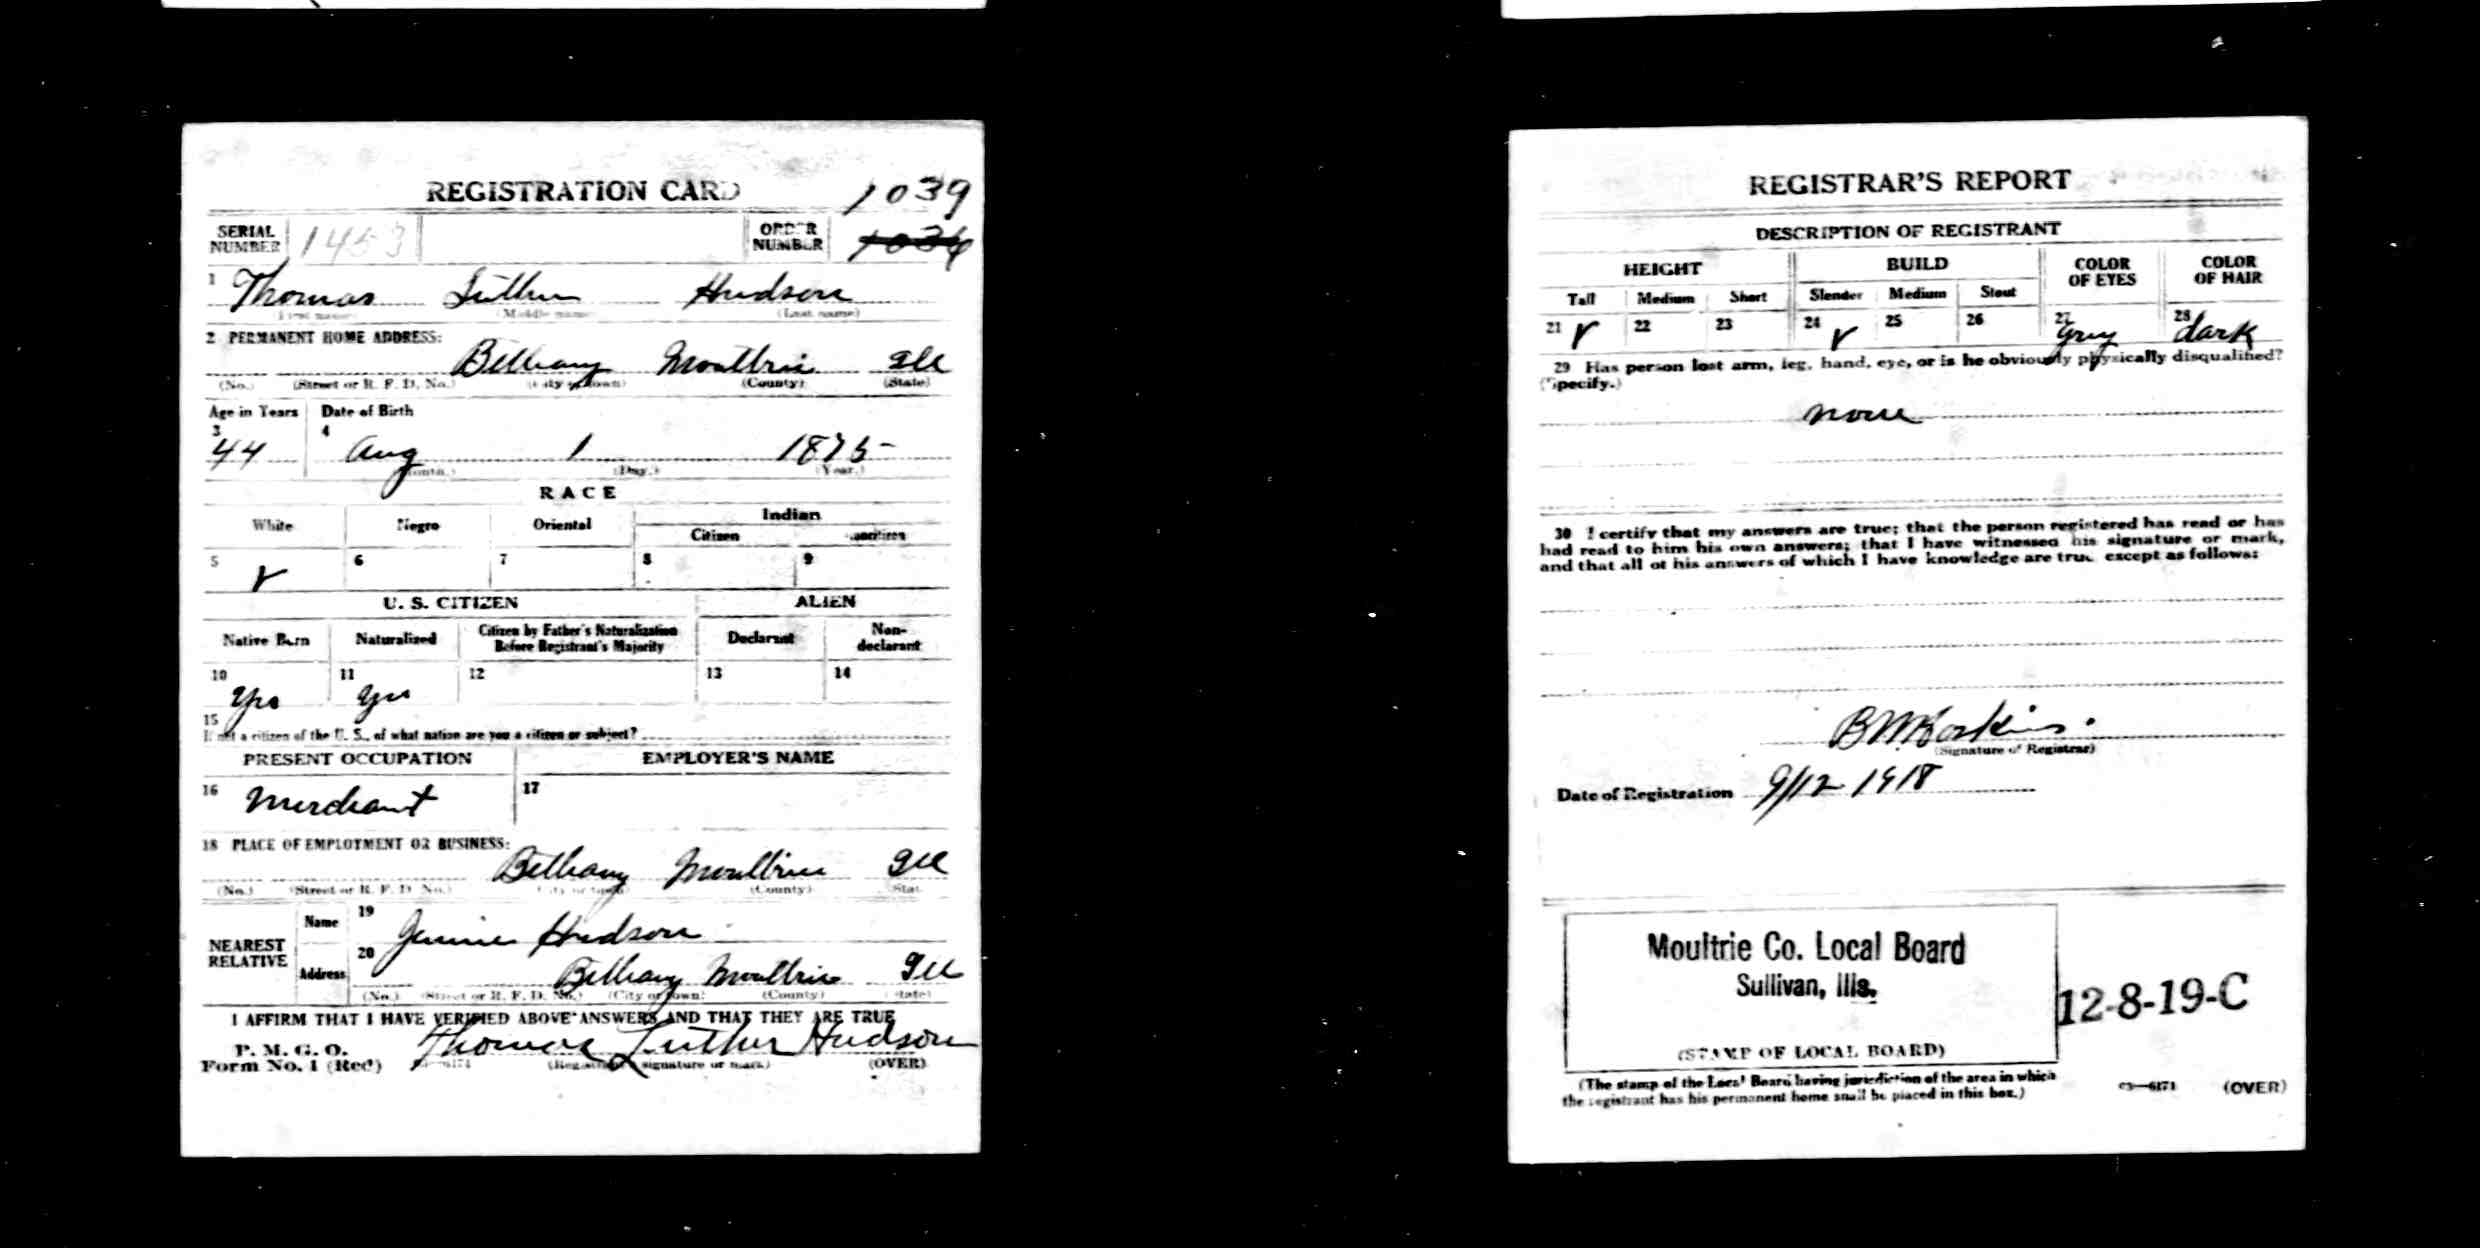 REGISTRATION CARD 1039
SERIAL NUMBER 1453 ORDER NUMBER
1 Thomas Luther Hudson
(First name) (Middle name) (Last name)
2 PERMANENT HOME ADDRESS:
Bethany Moultrie Ill
(No.) (Street or R. F. D. No.) (City or town) (County) (State)
Age in Years Date of Birth
3 4
44 Aug 1 1875
(Month.) (Day.) (Year.)
RACE
White Negro Oriental Indian
Citizen Noncitizen
5 6 7 8 9
U. S. CITIZEN ALIEN
Native Born Naturalized Citizen by Father's Naturalization Before Registrant's Majority Declarant Non-declarant
10 11 12 13 14
Yes Yes
15
If not a citizen of the U. S., of what nation are you a citizen or subject?
PRESENT OCCUPATION EMPLOYER'S NAME
16 Merchant 17
18 PLACE OF EMPLOYMENT OR BUSINESS:
Bethany Moultrie Ill
(No.) (Street or R. F. D. No.) (City or town) (County) (State)
NEAREST RELATIVE
Name 19 Jennie Hudson
Address 20 Bethany Moultrie Ill
(No.) (Street or R. F. D. No.) (City or town) (County) (State)
I AFFIRM THAT I HAVE VERIFIED ABOVE ANSWERS AND THAT THEY ARE TRUE
P. M. G. O.
Form No. 1 (Red) Thomas Luther Hudson
(Registrant's signature or mark) (OVER)
REGISTRAR'S REPORT
DESCRIPTION OF REGISTRANT
HEIGHT BUILD COLOR OF EYES COLOR OF HAIR
Tall Medium Short Slender Medium Stout
21 22 23 24 25 26 27 28
Gray dark
29 Has person lost arm, leg, hand, eye, or is he obviously physically disqualified?
(Specify.)
none
30 I certify that my answers are true; that the person registered has read or has
had read to him his own answers; that I have witnessed his signature or mark,
and that all of his answers of which I have knowledge are true except as follows:
B M Hoskins
(Signature of Registrar)
Date of Registration 9/12 1918
Moultrie Co. Local Board
Sullivan, Ills.
12-8-19-C
(STAMP OF LOCAL BOARD)
(The stamp of the Local Board having jurisdiction of the area in which
the registrant has his permanent home shall be placed in this box.)
03—6171 (OVER)